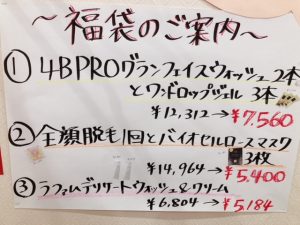 ～福袋のご案内～
① 4BPROグランフェイスウォッシュ2本
とワンドロップジェル 3本
¥12,312→¥7,560
② 全顔脱毛1回とバイオセルロースマスク
3枚
¥14,964→¥5,400
③ ラファムデリケートウォッシュ&クリーム
¥6,804→¥5,184